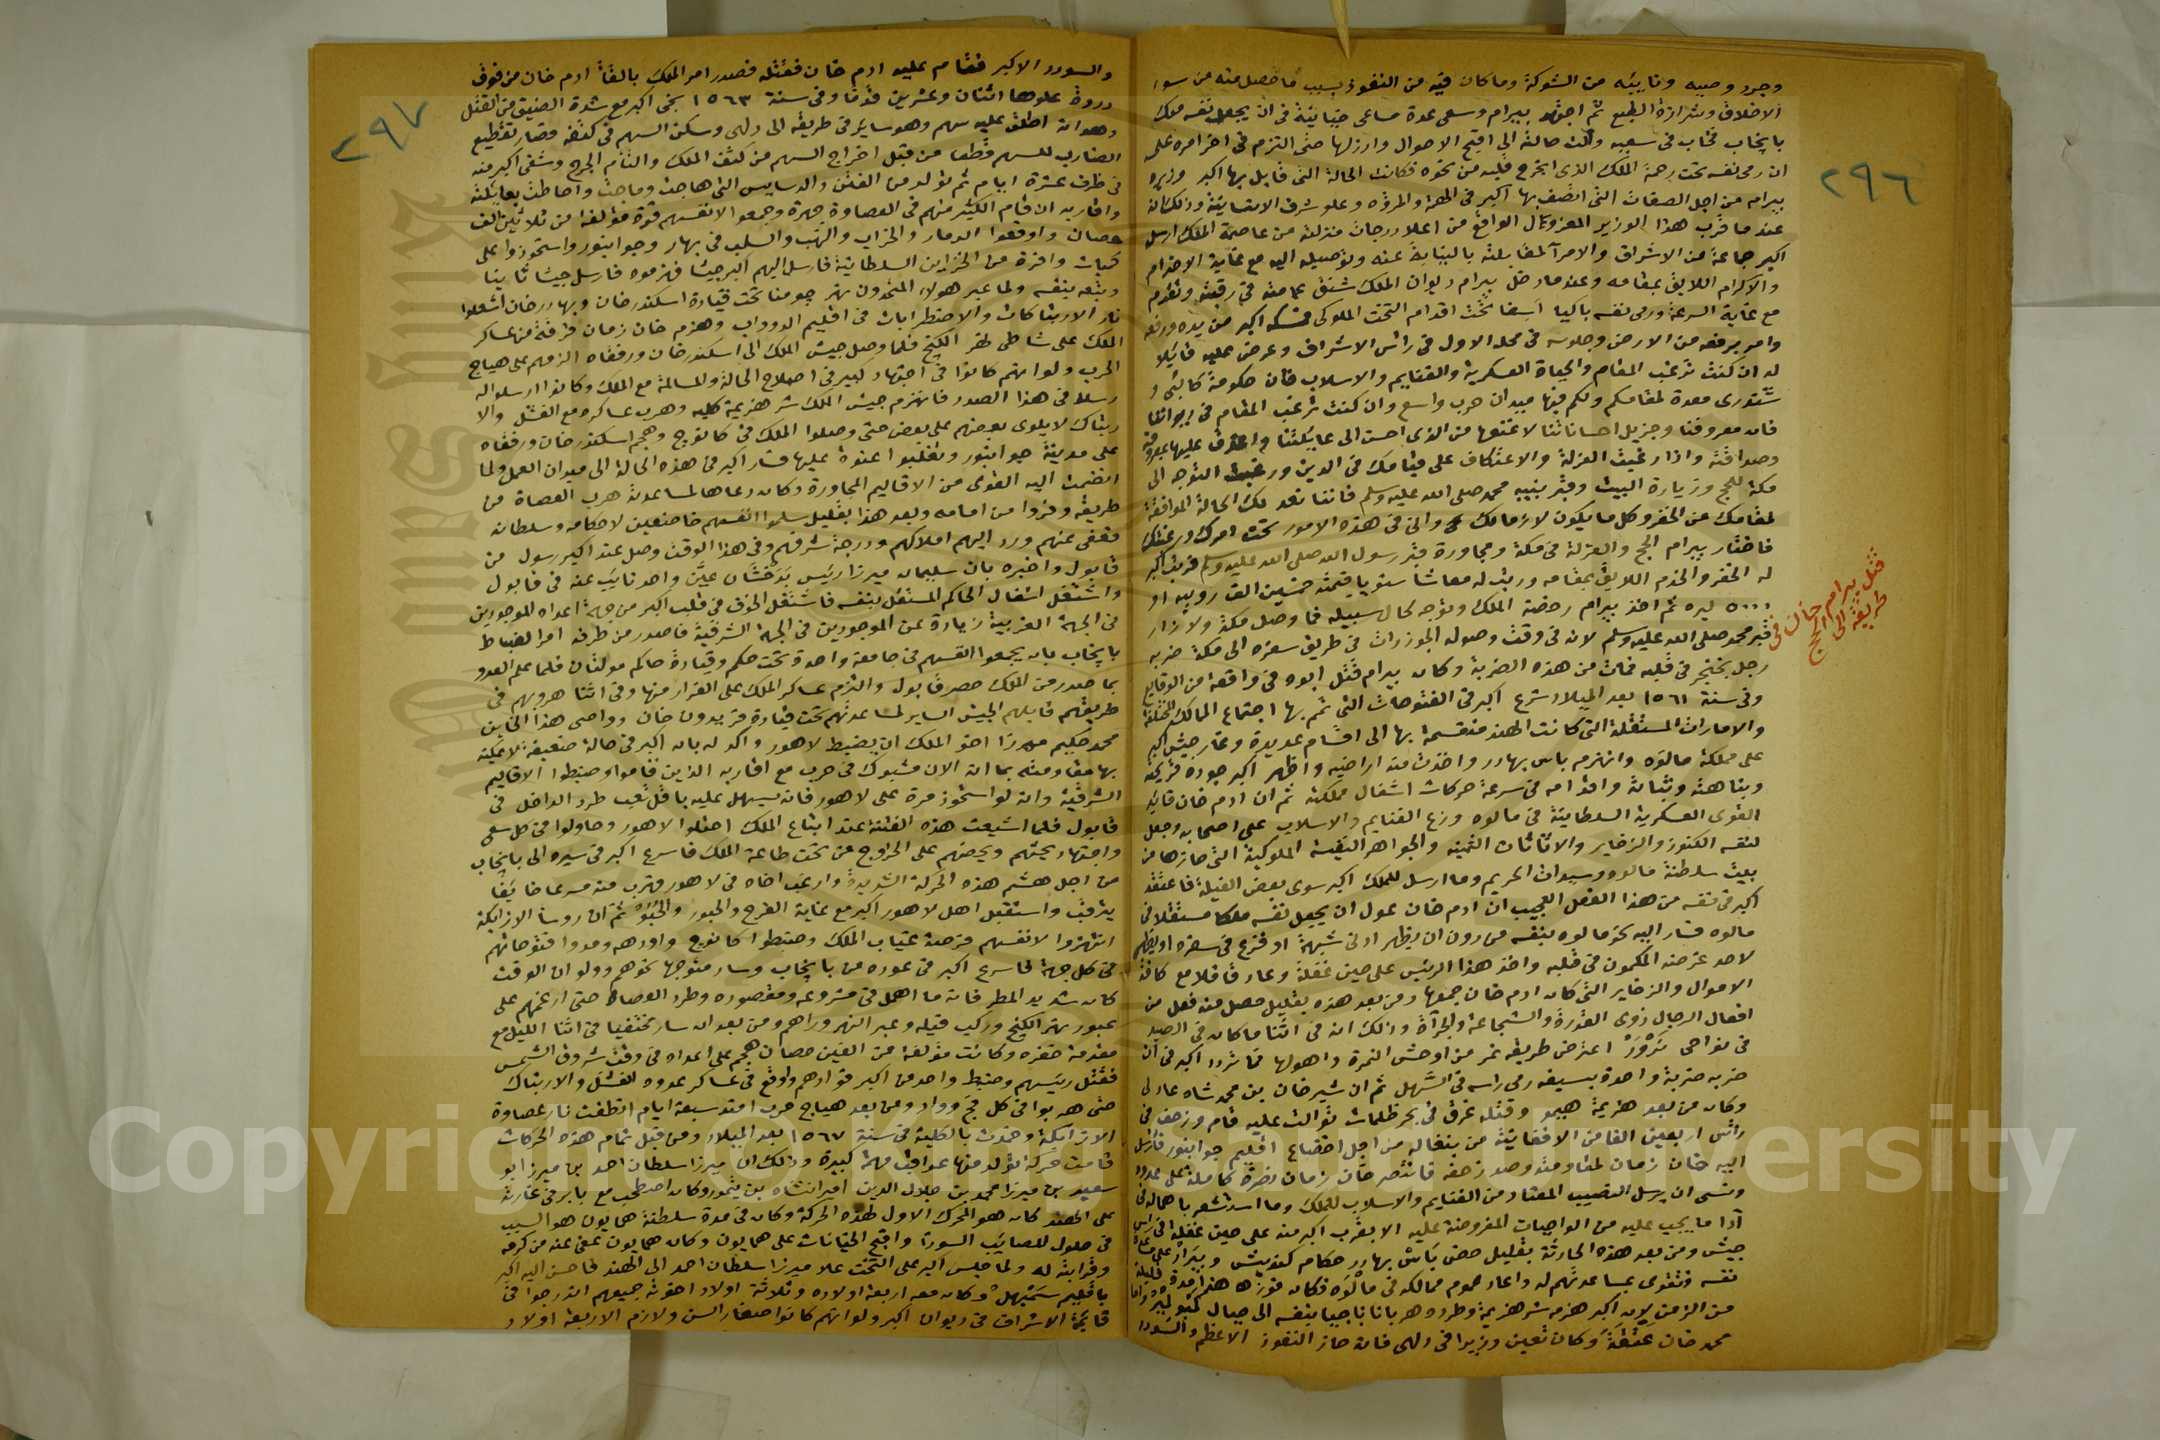 ٢٩٦
وجرد وصيه ونايبه من الشوكة وما كان فيه من النفوذ بسبب ما حصل منه من سوء
الاخلاق وشرارة الطبع ثم اجتهد بيرام وسعى عدة مساعى خيانية فى ان يجعل نفسه ملك
بايخاب فخاب فى سعيه وآلت حالته الى اقبح الاحوال وارزلها حتى التزم فى اخر امره على
ان رمى نفسه تحت رحمة الملك الذى انجرح قلبه من نحوه فكانت الحالة التى قابل بها اكبر وزيره
بيرام من اجل الصفات التى اتصف بها اكبر فى الهمة والمروّه وعلو شرف الانسانية وذلك انه
عند ما قرب هذا الوزير المعزول الواقع من اعلا درجات منزلته من عاصمة الملك ارسل
اكبر جماعة من الاشراف والامرآ لمقابلته بالنيابة عنه وتوصيله اليه مع غاية الاحترام
والاكرام اللايق بمقامه وعند ما دخل بيرام ديوان الملك شنق عمامته فى رقبته وتقدم
مع غاية السرعة ورمى نفسه باكيا اسفا تحت اقدام التخت الملوكى فمسكه اكبر من يده ورفعه
وامر برفعه من الارض وجلوسه فى محله الاول فى راس الاشراف وعرض عليه قايلا
له ان كنت ترغب المقام والحياة العسكرية والغنايم والاسلاب فان حكومة كالپى و
شنتورى معدة لمقامكم ولكم فيها ميدان حرب واسع وان كنت ترغب المقام فى ايواننا
فان معروفنا وجزيل احساناتنا لا تمنعها من الذى احسن الى عايلتنا واعترف عليها بمعروفه
وصداقته واذا رغبت العزلة والاعتكاف على قيامك فى الدين ورغبت التوجه الى
مكة للحج وزيارة البيت وقبر نبيه محمد صلى الله عليه وسلم فاننا نعد لك الحالة الموافقة
لمقامك من الخفر وكل ما يكون لازما لك وانى فى هذه الامور تحت امرك ورغبتك
فاختار بيرام الحج والعزلة فى مكة ومجاورة قبر رسول الله صلى الله عليه وسلم فرتب اكبر
له الخفر والخدم اللايق بمقامه ورتب له معاشا سنويا قيمته خمسين الف روبيه او
٥٠٠٠ ليره ثم اخذ بيرام رخصة الملك وتوجه لحال سبيله فما وصل مكة ولا زار
قبر محمد صلى الله عليه وسلم لان فى وقت وصوله الجوزرات فى طريق سفره الى مكة ضربه
رجل بخنجر فى قلبه فمات من هذه الضربة وكان بيرام قتل ابوه فى واقعة من الوقايع
وفى سنة ١٥٦١ بعد الميلاد شرع اكبر فى الفتوحات التى تم بها اجتماع الممالك المختلفة
والامارات المستقلة التى كانت الهند منقسمة بها الى اقسام عديدة وغار جيش اكبر
على مملكة مالوَه وانهزم باس بهادر واخذت منه اراضيه واظهر اكبر جودة قريحته
ونباهته وثباته واقدامه فى سرعة حركات اشغال مملكته ثم ان ادم خان قايد
القوى العسكرية السلطانية فى مالوه وزع الغنايم والاسلاب على اصحابه وجعل
لنفسه الكنوز والذخاير والاثاثات الثمينه والجواهر النفيسة الملوكية التى حازها من
بيت سلطنة مالوه وسيدات الحريم وما ارسل للملك اكبر سوى بعض الفيلة فاعتقد
اكبر فى نفسه من هذا الفعل العجيب ان ادم خان عول ان يجعل نفسه ملكا مستقلا فى
مالوه فسار اليه نحو مالوه بنفسه من دون ان يظهر ادنى شبهة او فزع فى سفره او يظهر
لاحد غرضه المكمون فى قلبه واخذ هذا الرئيس على حين غفلة وعاد قافلا مع كافة
الاموال والذخاير التى كان ادم خان جمعها ومن بعد هذه بقليل حصل منه فعل من
افعال الرجال ذوى القدرة والشجاعة والجرأة وذلك انه فى اثنا ما كان فى الصيد
فى نواحى نَرْوَرْ اعترض طريقه نمر من اوحش النمرة واهولها فما تردد اكبر فى ان
ضربه ضربة واحدة بسيفه رمى راسه فى السّهل ثم ان شيرخان بن محمد شاه عادلى
وكان من بعد هزيمة هيمو وقتله غرق فى بحر ظلمات توالت عليه قام وزحف فى
راس اربعين الفا من الافغانية من بنغاله من اجل اخضاع اقليم جوانپور فارسل
اليه خان زمان لمقاومته وصد زحفه فانتصر خان زمان نصرة كاملة على عدوه
ونسى ان يرسل النصيب المعتاد من الغنايم والاسلاب للملك وما استشعر باهماله فى
آدا ما يجب عليه من الواجبات المفروضة عليه الا بقرب اكبر منه على حين غفلة فى راس
جيش ومن بعد هذه الحادثة بقليل حض بَاس بهادر حكام كنديش وبيَرارْ على
نفسه فتقوى بمساعدتهم له واعاد عموم ممالكه فى مالْوَه فكان فوزه هذا مدة قليلة
من الزمن لان اكبر هزمه شر هزيمة وطرده هربانا ناجيا بنفسه الى جبال
محمد خان عَتْقَةَ وكان تعين وزيرا فى دلهى فانه حاز النفوذ الاعظم والسّودد
قتل بيرام خان فى
طريقه الى
الحج
٢٩٧
والسودد الاكبر فقام عليه ادم خان فقتله فصدر امر الملك بالقآ ادم خان من فوق
دروة علوها اثنان وعشرين قدمًا وفى سنة ١٥٦٣ نجى اكبر مع شدة الضيق من القتل
وهو انه اطلق عليه سهم وهو ساير فى طريقه الى دلهى وسكن السهم فى كتفه فصار تقطيع
الضارب للسهم قطعا من قبل اخراج السهم من كتف الملك والتأم الجرح وشفى اكبر منه
فى ظرف عشرة ايام ثم تولد من الفتن والدسايس التى هاجت وماجت واحاطت بعايلته
واقاربه ان قام الكثير منهم فى العصاوة جهرة وجمعوا لانفسهم قوة مؤلفة من ثلاثين الف
حصان واوقعوا الدمار والخراب والنهب والسلب فى بهار وجوانپور واستحوذوا على
كميات وافرة من الخزاين السلطانية فارسل اليهم اكبر جيشا فهزموه فارسل جيشا ثانيا
وتبعه بنفسه ولما عبر هولاء المتحدون نهر چومنا تحت قيادة اسكندر خان وبهادر خان اشعلوا
نار الارتباكات والاضطرابات فى اقليم الدوداب وهزم خان زمان فرقة من عساكر
الملك على شاطى نهر الكنج فلما وصل جيش الملك الى اسكندر خان ورفقاه الزمهم على هياج
الحرب ولو انهم كانوا فى اجتهاد كبير فى اصلاح الحالة والمسالمة مع الملك وكانوا ارسلوا له
رسلا فى هذا الصدد فانهزم جيش الملك شر هزيمة كليه وهرب عساكره مع الفشل والا
رتباك لا يلوى بعضهم على بعض حتى وصلوا الملك فى كانوج وهجم اسكندر خان ورفقاه
على مدينة جوانپور وتغلبوا عنوة عليها فسار اكبر فى هذه الحالة الى ميدان العمل ولما
انضمت اليه القوى من الاقاليم المجاورة وكان دعاها لمساعدته هرب العصاة من
طريقه وفروا من امامه وبعد هذا بقليل سلموا انفسهم خاضعين لاحكامه وسلطانه
فعفى عنهم ورد اليهم املاكهم ودرجة شرفهم وفى هذا الوقت وصل عند اكبر رسول من
قابول واخبره بان سليمان ميرزا رئيس بَدَخْشَان عيّن واحد نايب عنه فى قابول
واشتغل اشغال الحاكم المستقل بنفسه فاشتعل الخوف فى قلب اكبر من جهة اعداه الموجودين
فى الجهة الغربية زيادة عن الموجودين فى الجهة الشرقية فاصدر من طرفه امرا لضباط
بايخاب بان يجمعوا انفسهم فى جامعة واحدة تحت حكم وقيادة حاكم مولتان فلما علم العدو
بما صدر من الملك حصر قابول والتزم عساكر الملك على الفرار منها وفى اثنا هروبهم فى
طريقهم قابلهم الجيش الساير لمساعدتهم تحت قيادة فريدون خان وواصى هذا الخاين
محمد حكيم ميرزا اخو الملك ان يضبط لاهور واكد له بان اكبر فى حالة ضعيفة لا يمكنه
بها مقاومته بما انه الان مشبوك فى حرب مع اقاربه الذين قاموا وضبطوا الاقاليم
الشرقية وانه لو استحوذ مرة على لاهور فانه يسهل عليه باقل تعب طرد الداخل فى
قابول فلما اشيعت هذه الفتنة عند اتباع الملك احتلوا لاهور وحاولوا فى كل سعى
واجتهاد يحثهم ويحضهم على الخروج من تحت طاعة الملك فاسرع اكبر فى سيره الى بايخاب
من اجل هشم هذه الحركة الشديدة وارعب اخاه فى لاهور فهرب منه مسرعا خايفا
يترقب واستقبل اهل لاهور اكبر مع غاية الفرح والحبور ثم ان روسآ الازابكة
انتهزوا لانفسهم فرصة غياب الملك وضبطوا كانوج واودهه ومدوا فتوحاتهم
فى كل جهة فاسرع اكبر فى عوده من بايخاب وسار متوجها نحوهم ولو ان الوقت
كان شديد المطر فانه ما اهمل فى مشروعه ومقصوده وطرد العصاة حتى ارغمهم على
عبور نهر الكنج وركب فيله وعبر النهر وراهم ومن بعد ان سار مختفيا فى اثنا الليل مع
مقدمة خفره وكانت مؤلفة من الفين حصان هجم على اعداه فى وقت شروق الشمس
فقتل رئيسهم وضبط واحد من اكبر قوادهم واوقع فى عساكر عدوه الفشل والارتباك
حتى هربوا فى كل فج وواد ومن بعد هياج حرب امتد سبعة ايام انطفت نار عصاوة
الازابكة وخمدت بالكلية فى سنة ١٥٦٧ بعد الميلاد ومن قبل تمام هذه الحركات
قامت حركة تولد منها عواقب مهمة كبيرة وذلك ان ميرزا سلطان احمد بن ميرزا بو
سعيد بن ميرزا محمد بن جلال الدين اميرانشاه بن تيمور وكان اصطحب مع بابر فى غارته
على الهند كان هو المحرك الاول لهذه الحركة وكان فى مدة سلطنة همايون هو السبب
فى حلول المصايب السودآ واقبح الخيانات على همايون وكان همايون عفى عنه من كرمه
وقرابته له ولما جلس اكبر على التخت علا ميرزا سلطان احمد الى الهند فاحسن اليه اكبر
باقليم سَمْبهلْ وكان معه اربعة اولاده وثلاثة اولاد اخوته جميعهم اندرجوا فى
قايمة الاشراف فى ديوان اكبر ولو انهم كانوا صغار السن ولازم الاربعة اولاد
Copyright © King Saud University